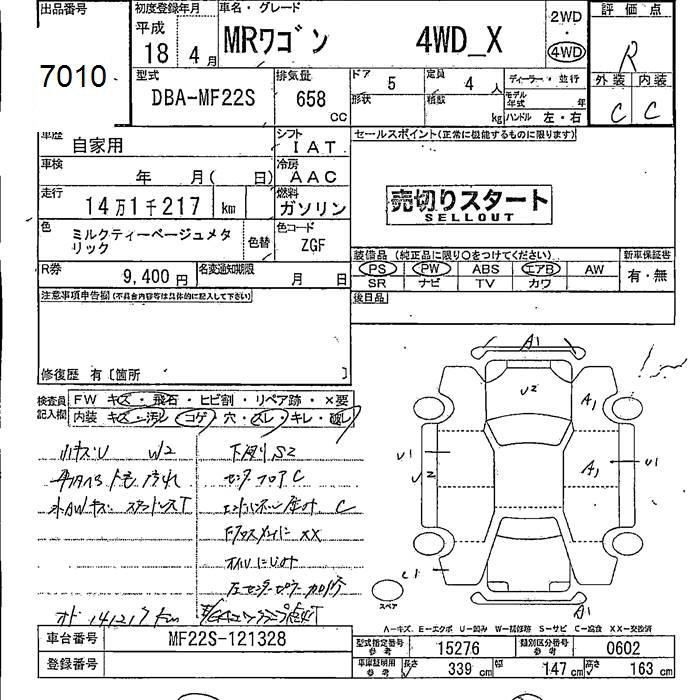 出品番号
7010
初度登録年月
平成
18 年 4 月
車名・グレード
MRワゴン 4WD_X
2WD
4WD
評価点
R
外装 内装
C C
型式
DBA-MF22S
排気量
658
cc
ドア
5
定員
4 人
形状
積数
kg
ディーラー・並行
モデル
年式 年
ハンドル 左・右
車歴
自家用
シフト
IAT
セールスポイント(正常に機能するものに限ります)
車検
年 月( 日)
冷房
AAC
走行
14万1千217 km
燃料
ガソリン
売切りスタート
SELLOUT
色
ミルクティーベージュメタ
リック
色替
色コード
ZGF
装備品 (純正品に限り○をつけてください)
新車保証書
PS PW ABS エアB AW
有・無
SR ナビ TV カワ
R券
9,400 円
名変通知期限
月 日
後日品
注意事項申告欄(不具合内容等は具体的に記入して下さい)
修復歴 有〔箇所 〕
検査員
記入欄
FW キズ・飛石・ヒビ割・リペア跡・×要
内装 キズ・汚レ・コゲ・穴・スレ・キレ・破レ
小キズU W2
下廻りS2
C
XX
オド 141217km
A1
U2
A1
A1
U1
U2
U1
C1
A1
スペア
A-キズ E-エクボ U-凹み W-補修跡 S-サビ C-腐食 XX-交換済
車台番号
MF22S-121328
登録番号
型式指定番号
参考
15276
類別区分番号
参考
0602
車庫証明用
参考
長さ 339 cm
幅 147 cm
高さ 163 cm